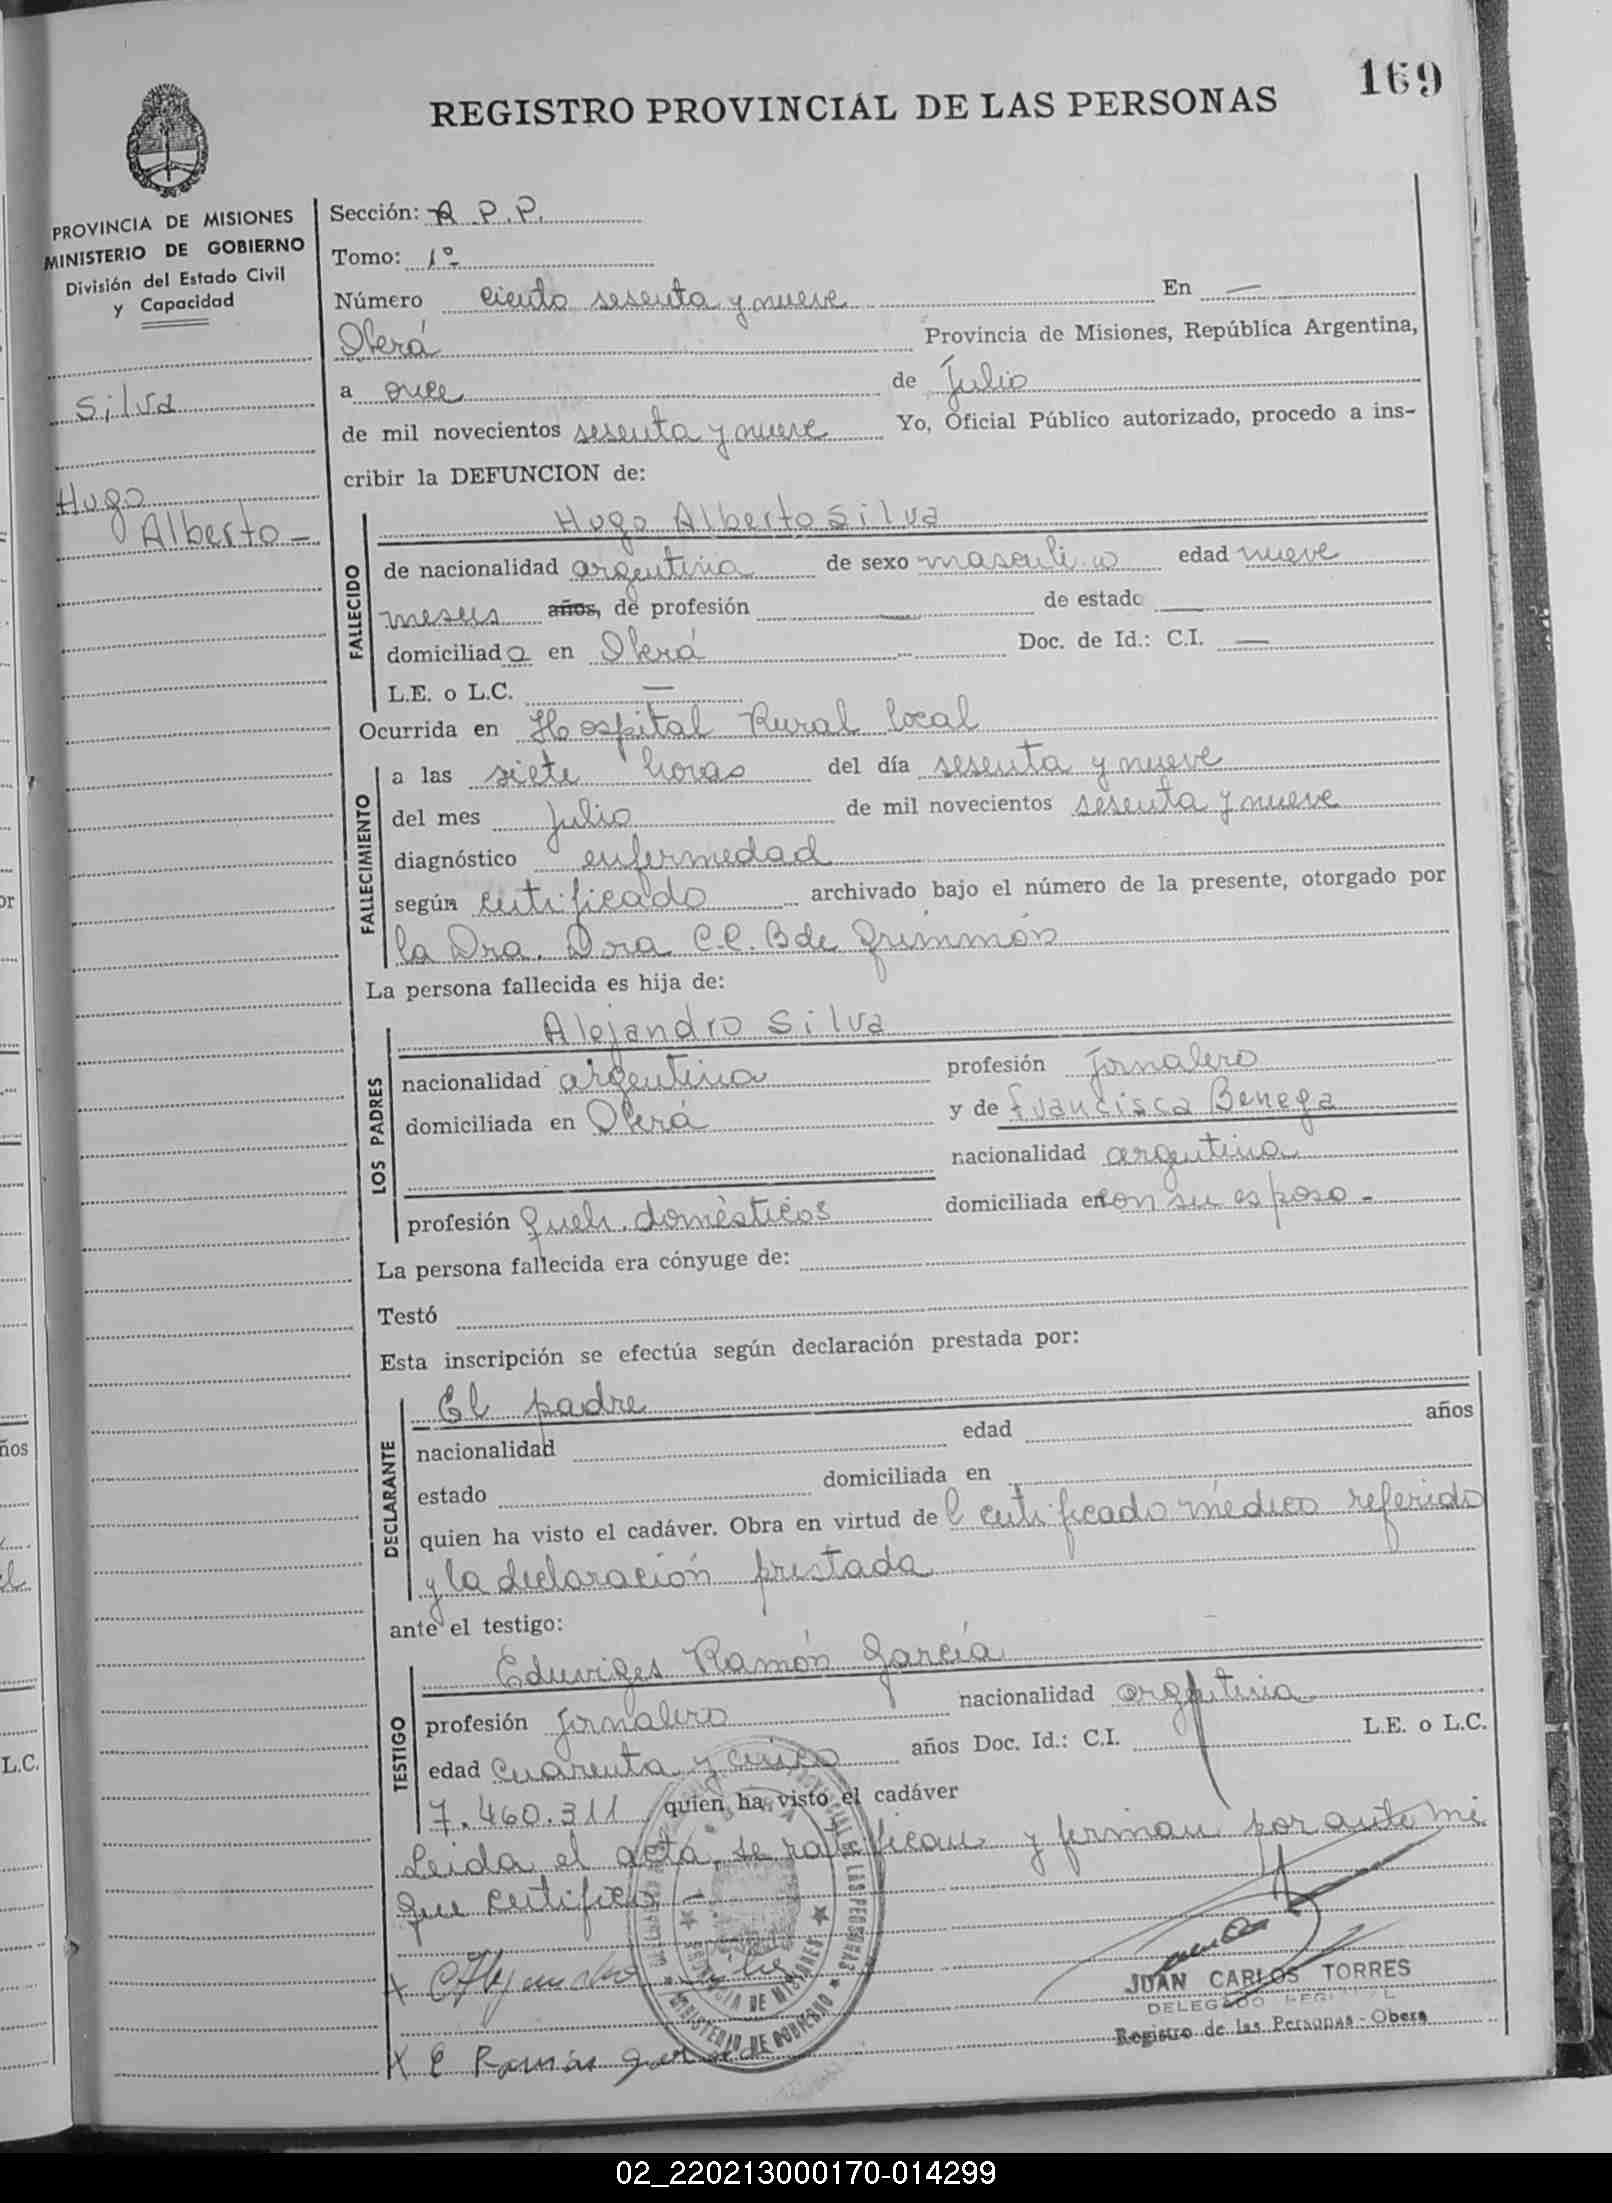 169
REGISTRO PROVINCIAL DE LAS PERSONAS
PROVINCIA DE MISIONES
MINISTERIO DE GOBIERNO
División del Estado Civil
y Capacidad
Silva
Hugo
Alberto -
Sección: A P.P.
Tomo: 1º
Número ciento sesenta y nueve En —
Oberá Provincia de Misiones, República Argentina,
a once de Julio
de mil novecientos sesenta y nueve Yo, Oficial Público autorizado, procedo a ins-
cribir la DEFUNCION de:
FALLECIDO
Hugo Alberto Silva
de nacionalidad argentina de sexo masculino edad nueve
meses años, de profesión — de estado —
domiciliado en Oberá Doc. de Id.: C.I. —
L.E. o L.C. —
Ocurrida en Hospital Rural local
FALLECIMIENTO
a las siete horas del día sesenta y nueve
del mes Julio de mil novecientos sesenta y nueve
diagnóstico enfermedad
según certificado archivado bajo el número de la presente, otorgado por
la Dra. Dora C.C. B de Grimmón
La persona fallecida es hija de:
LOS PADRES
Alejandro Silva
nacionalidad argentina profesión Jornalero
domiciliada en Oberá y de Francisca Benega
nacionalidad argentina
profesión queh. domésticos domiciliada en con su esposo -
La persona fallecida era cónyuge de:
Testó
Esta inscripción se efectúa según declaración prestada por:
DECLARANTE
El padre
nacionalidad edad años
estado domiciliada en
quien ha visto el cadáver. Obra en virtud del certificado médico referido
y la declaración prestada
ante el testigo:
TESTIGO
Eduviges Ramón García
profesión Jornalero nacionalidad argentina
edad cuarenta y cinco años Doc. Id.: C.I. L.E. o L.C.
7.460.311 quien ha visto el cadáver
Leida el acta, se ratifican y firman por ante mi
que certifico -
X Alejandro Silva
X E Ramón Garcia
PROVINCIA DE MISIONES
MINISTERIO DE GOBIERNO
JUAN CARLOS TORRES
DELEGADO
Registro de las Personas - Obera
ños
L.C.
or
02_220213000170-014299